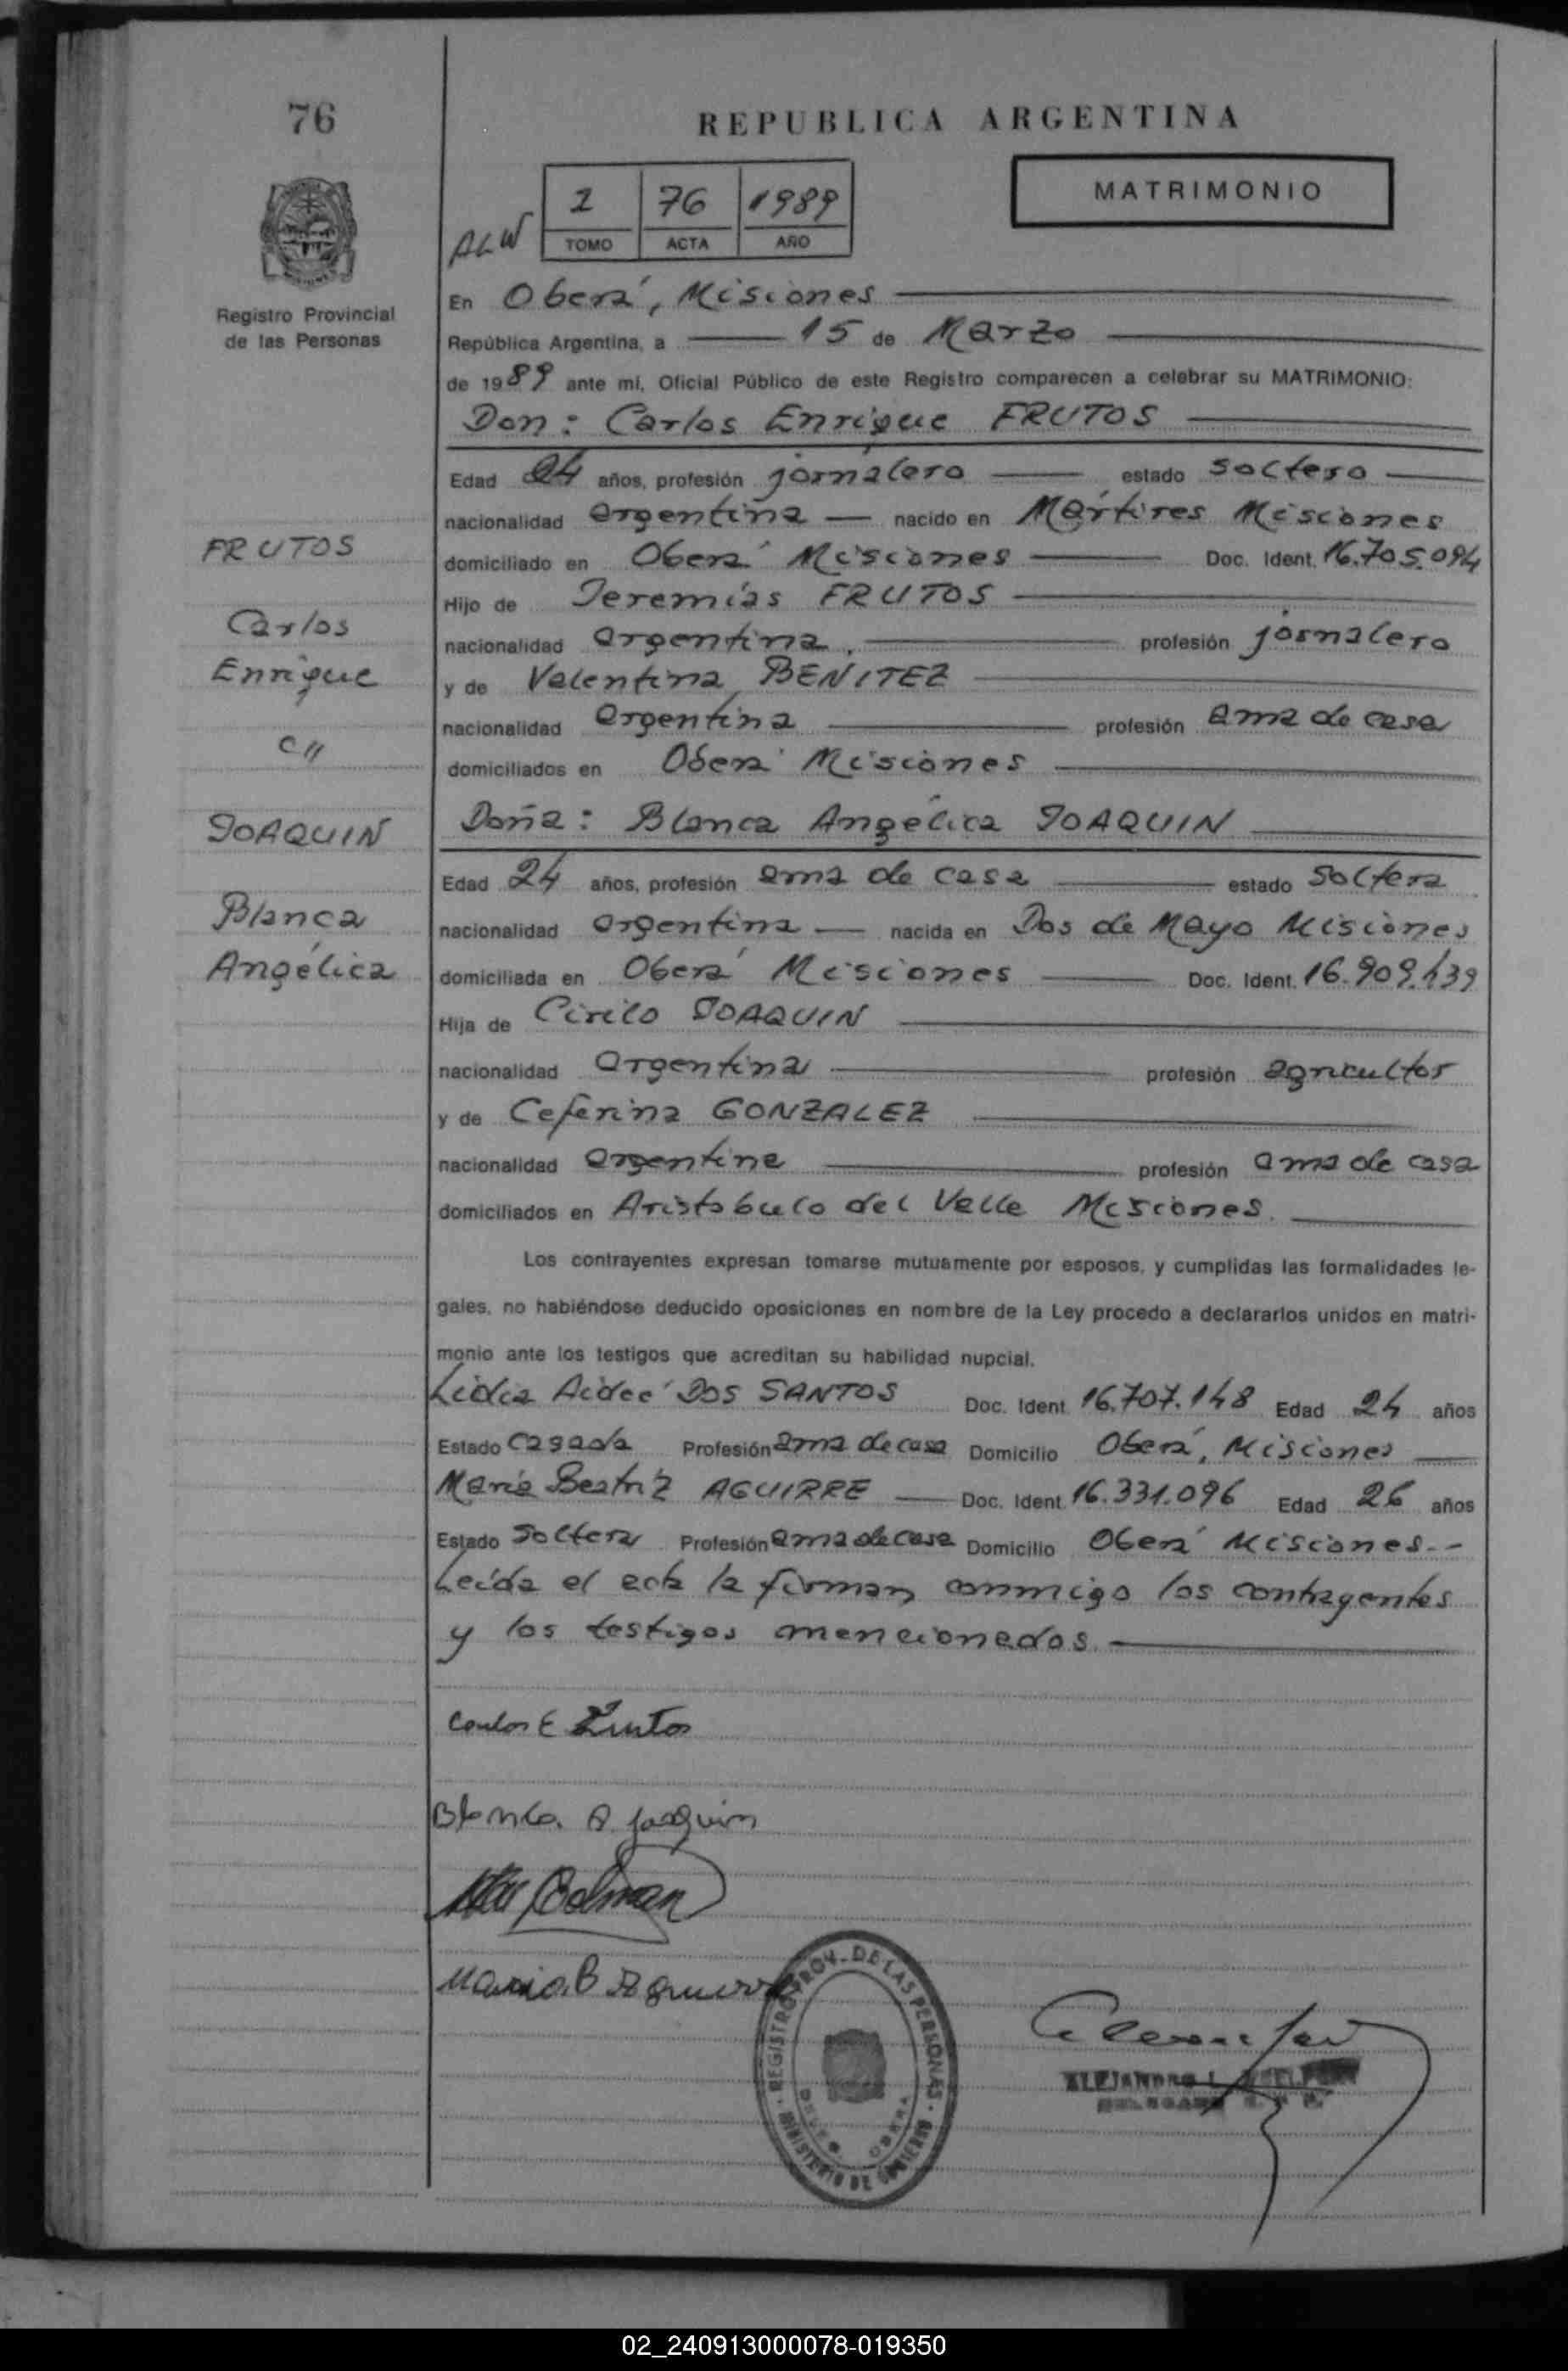 76
REPUBLICA ARGENTINA
MATRIMONIO
1 76 1989
TOMO ACTA AÑO
ALW
Registro Provincial
de las Personas
En Oberá, Misiones
República Argentina, a 15 de Marzo
de 1989 ante mí, Oficial Público de este Registro comparecen a celebrar su MATRIMONIO:
Don: Carlos Enrique FRUTOS
Edad 24 años, profesión jornalero estado soltero
nacionalidad argentina nacido en Mártires Misiones
domiciliado en Oberá Misiones Doc. Ident. 16.705.094
Hijo de Jeremías FRUTOS
nacionalidad argentina, profesión jornalero
y de Valentina BENITEZ
nacionalidad argentina profesión ama de casa
domiciliados en Oberá Misiones
Doña: Blanca Angélica JOAQUIN
Edad 24 años, profesión ama de casa estado soltera
nacionalidad argentina nacida en Dos de Mayo Misiones
domiciliada en Oberá Misiones Doc. Ident. 16.909.439
Hija de Cirilo JOAQUIN
nacionalidad argentina profesión agricultor
y de Ceferina GONZALEZ
nacionalidad argentina profesión ama de casa
domiciliados en Aristobulo del Valle Misiones.
Los contrayentes expresan tomarse mutuamente por esposos, y cumplidas las formalidades le-
gales, no habiéndose deducido oposiciones en nombre de la Ley procedo a declararlos unidos en matri-
monio ante los testigos que acreditan su habilidad nupcial.
Lidia Aideé DOS SANTOS Doc. Ident. 16.707.148 Edad 24 años
Estado casada Profesión ama de casa Domicilio Oberá, Misiones
María Beatriz AGUIRRE Doc. Ident. 16.331.096 Edad 26 años
Estado soltera Profesión ama de casa Domicilio Oberá Misiones.-
Leída el acta la firman conmigo los contrayentes
y los testigos mencionados.
FRUTOS
Carlos
Enrique
c//
JOAQUIN
Blanca
Angélica
Carlos E Frutos
Blanca. A. Joaquin
Maria. B Aguirre
REGISTRO PROV. DE LAS PERSONAS
MINISTERIO DE GOBIERNO
OBERA
ALEJANDRO L.
02_240913000078-019350